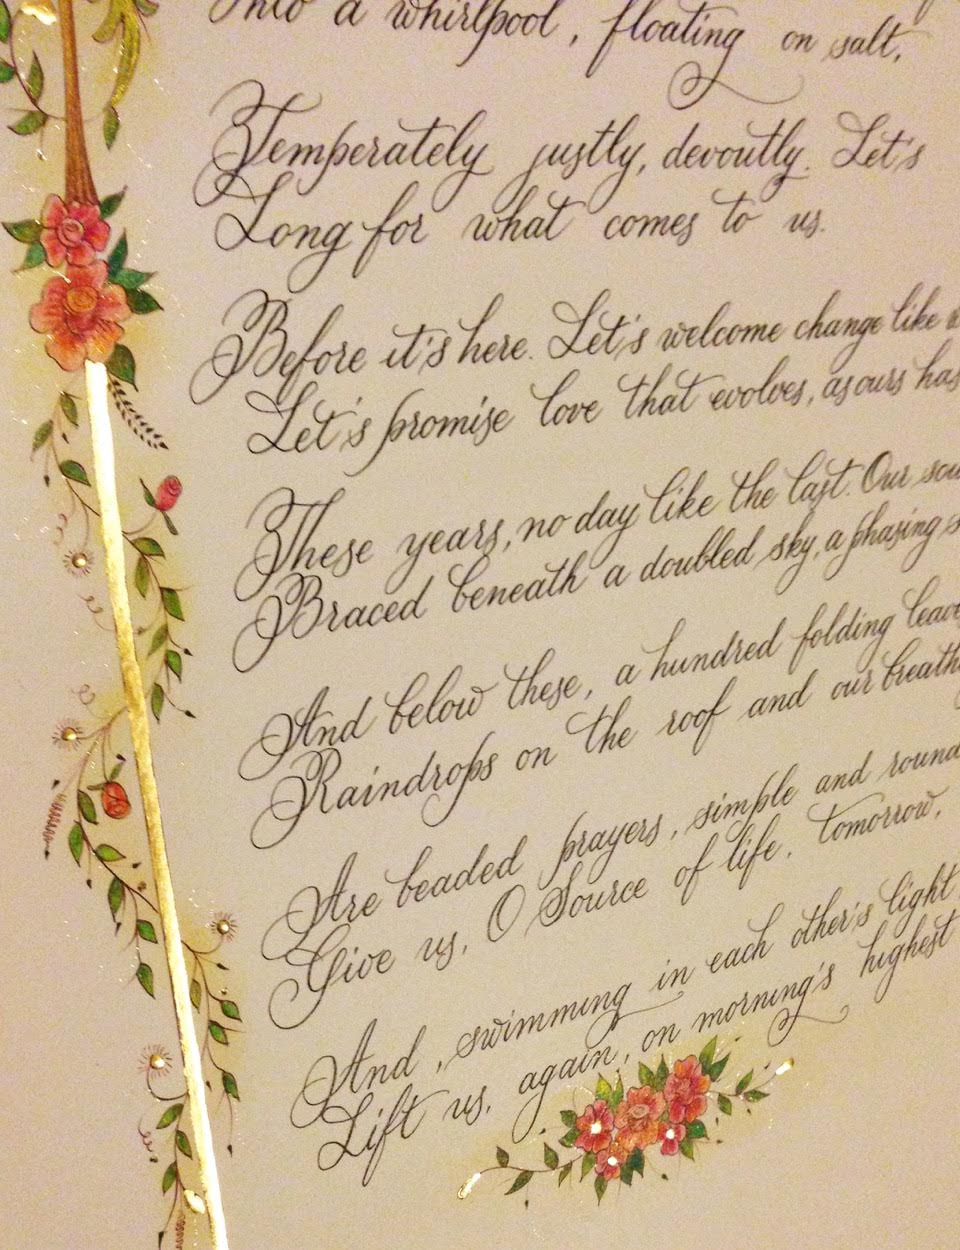 Into a whirlpool, floating on salt,
Temperately justly, devoutly. Let's
Long for what comes to us.
Before it's here. Let's welcome change like
Let's promise love that evolves, as ours has
These years, no day like the last. Our
Braced beneath a doubled sky, a phasing
And below these, a hundred folding
Raindrops on the roof and our
Are beaded prayers, simple and round
Give us, O Source of life, tomorrow,
And, swimming in each other's light
Lift us, again, on morning's highest